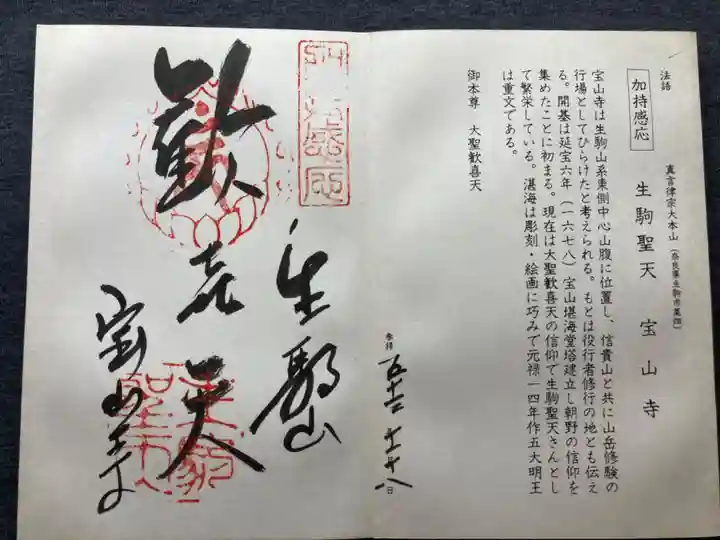 法話
加持感応
真言律宗大本山(奈良県生駒市門前町)
生駒聖天 宝山寺
宝山寺は生駒山系東側中心山腹に位置し、信貴山と共に山岳修験の
行場としてひらけたと考えられる。もとは役行者修行の地とも伝え
る。開基は延宝六年(一六七八)宝山堪海堂塔建立し朝野の信仰を
集めたことに初まる。現在は大聖歓喜天の信仰で生駒聖天さんとし
て繁栄している。湛海は彫刻・絵画に巧みで元禄一四年作五大明王
は重文である。
御本尊 大聖歓喜天
参拝
日
生駒山
歓喜天
宝山寺